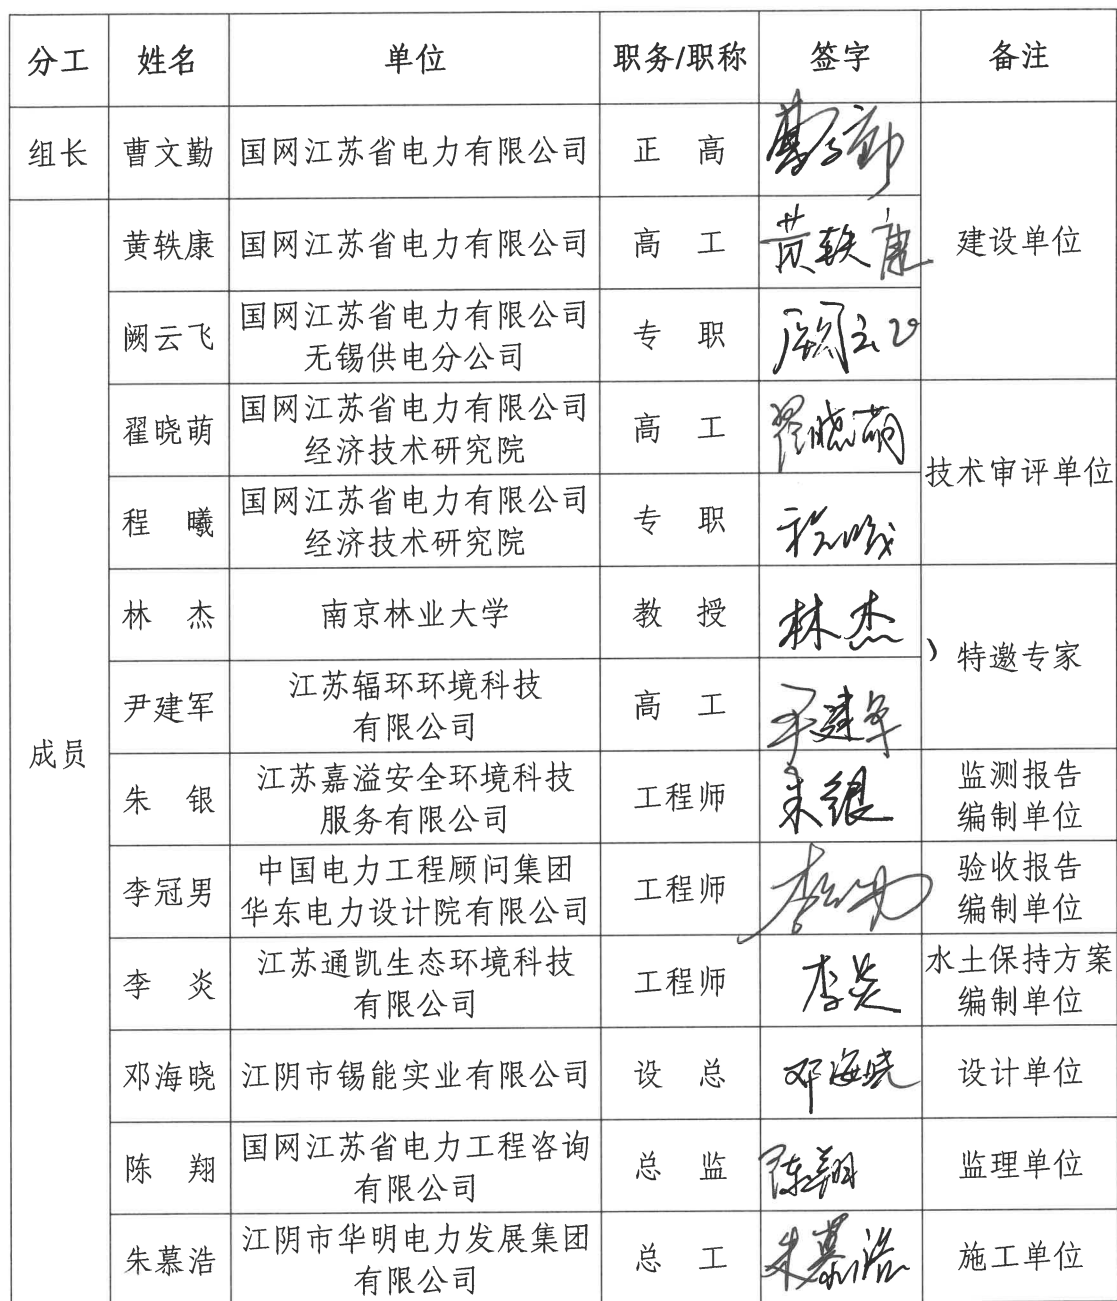 分工 姓名 单位 职务/职称 签字 备注
组长 曹文勤 国网江苏省电力有限公司 正 高 曹文勤 建设单位
成员
黄轶康 国网江苏省电力有限公司 高 工 黄轶康
阙云飞 国网江苏省电力有限公司
无锡供电分公司
专 职 阙云飞
翟晓萌 国网江苏省电力有限公司
经济技术研究院
高 工 翟晓萌 技术审评单位
程 曦 国网江苏省电力有限公司
经济技术研究院
专 职 程曦
林 杰 南京林业大学 教 授 林杰 特邀专家
尹建军 江苏辐环环境科技
有限公司
高 工 尹建军
朱 银 江苏嘉溢安全环境科技
服务有限公司
工程师 朱银 监测报告
编制单位
李冠男 中国电力工程顾问集团
华东电力设计院有限公司
工程师 李冠男 验收报告
编制单位
李 炎 江苏通凯生态环境科技
有限公司
工程师 李炎 水土保持方案
编制单位
邓海晓 江阴市锡能实业有限公司 设 总 邓海晓 设计单位
陈 翔 国网江苏省电力工程咨询
有限公司
总 监 陈翔 监理单位
朱慕浩 江阴市华明电力发展集团
有限公司
总 工 朱慕浩 施工单位